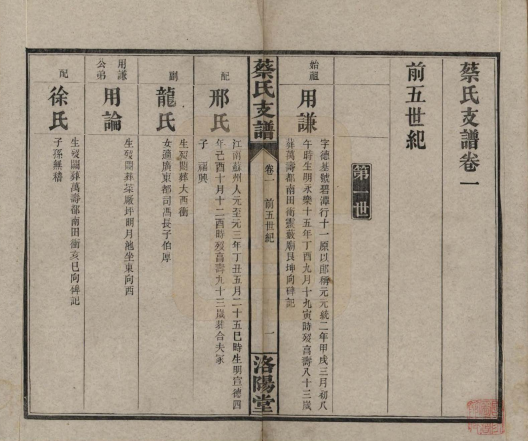 蔡氏支譜卷一
前五世紀
第一世
始祖
用謙
字德基號碧潭行十一原以郎稱元元統二年甲戌三月初八
午時生明永樂十五年丁酉九月十九寅時歿享壽八十三歲
葬萬壽都南田衝靈藪廟艮坤向碑記
配
邢氏
江南蘇州人元至元三年丁丑五月二十五巳時生明宣德四
年己酉十月十二酉時歿享壽九十三歲葬合夫冢
子 福興
蔡氏支譜
卷一 前五世紀
一
洛陽堂
副
龍氏
生歿闕葬大西衝
女適廣東都司馮長子伯厚
用謙
公弟
用論
生歿闕葬菜廠坪前月池坐東向西
配
徐氏
生歿闕葬萬壽都南田衝亥巳向碑記
子孫無稽